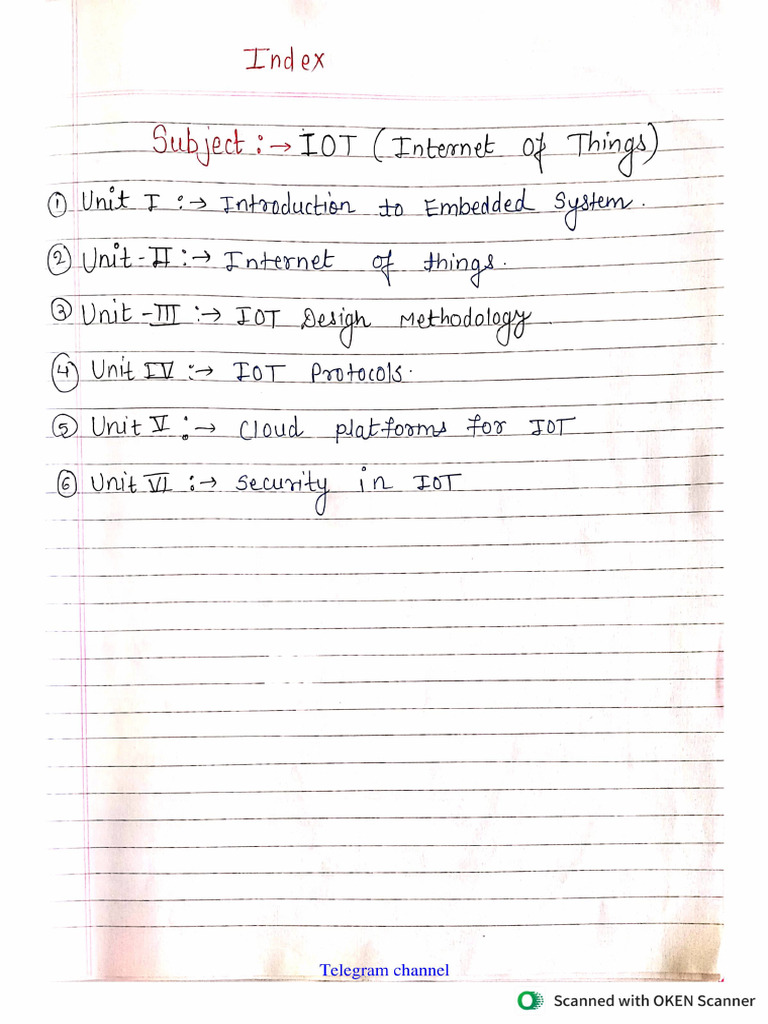 Index
Subject :→ IOT (Internet of Things)
① Unit I :→ Introduction to Embedded System.
② Unit-II :→ Internet of things.
③ Unit-III :→ IOT Design Methodology
④ Unit IV :→ IOT Protocols.
⑤ Unit V :→ Cloud platforms for IOT
⑥ Unit VI :→ Security in IOT
Telegram channel
Scanned with OKEN Scanner